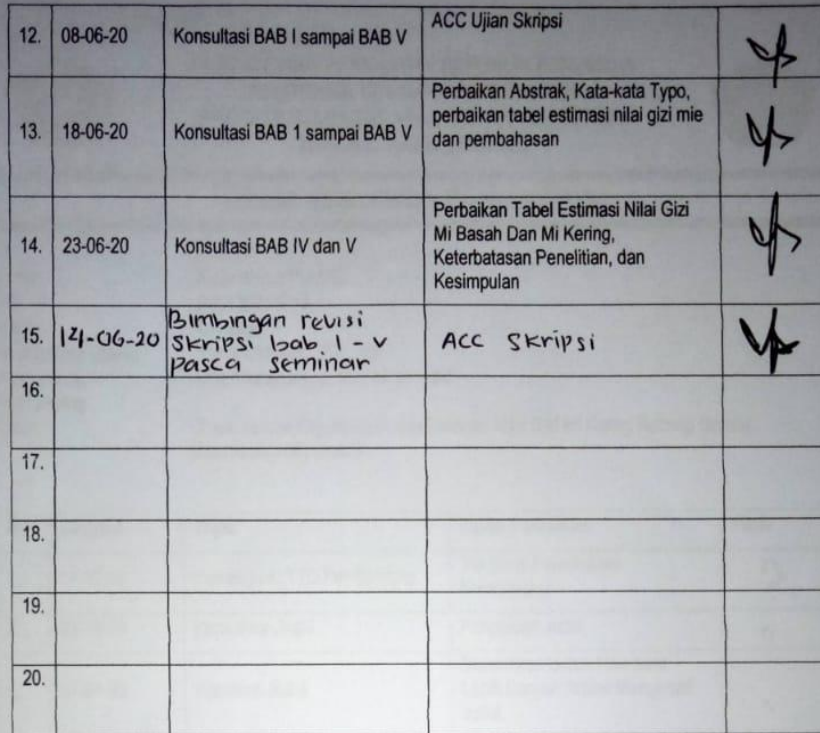 12. 08-06-20 Konsultasi BAB I sampai BAB V ACC Ujian Skripsi
13. 18-06-20 Konsultasi BAB 1 sampai BAB V Perbaikan Abstrak, Kata-kata Typo,
perbaikan tabel estimasi nilai gizi mie
dan pembahasan
14. 23-06-20 Konsultasi BAB IV dan V Perbaikan Tabel Estimasi Nilai Gizi
Mi Basah Dan Mi Kering,
Keterbatasan Penelitian, dan
Kesimpulan
15. Bimbingan revisi
skripsi bab 1 - V
pasca seminar
ACC Skripsi
16.
17.
18.
19.
20.